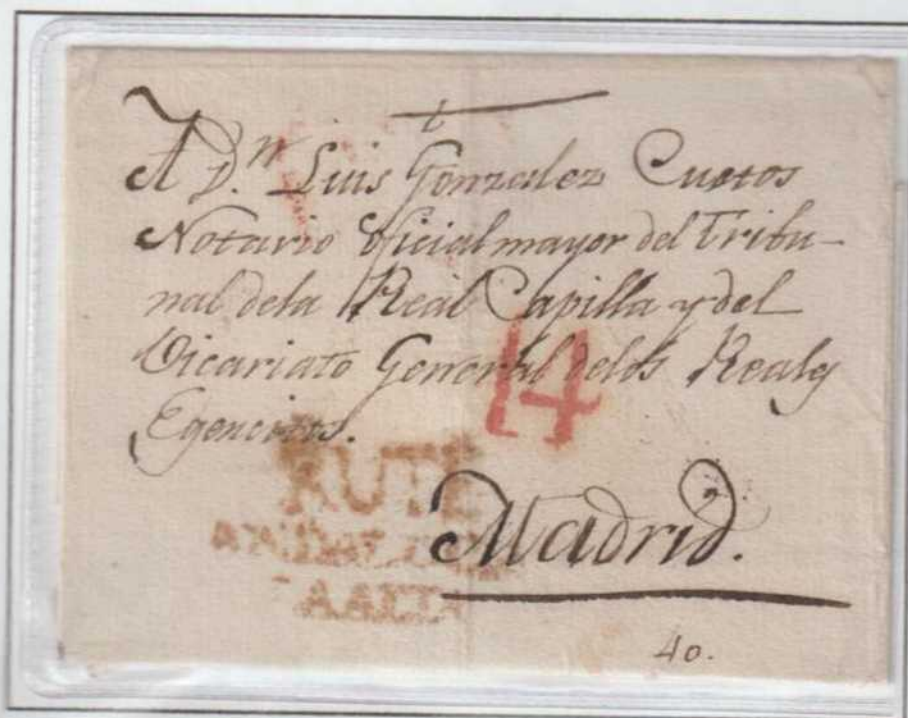 A D.n Luis Gonzalez Cuetos
Notario oficial mayor del Tribu-
nal dela Real Capilla y del
Vicariato General delos Reales
Egercitos.
14
RUTE
ANDALUCIA
AALTA
Madrid.
40.